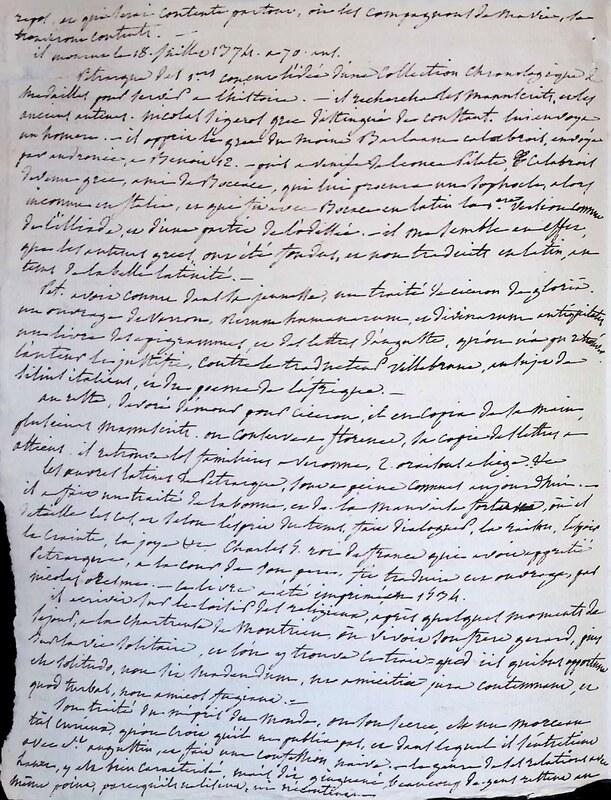 repos, et qui serai contente partout, où les compagnons de ma vie, se
trouveront contents. —
il mourut le 18. juillet 1374. a 70. ans.
Petrarque des 1ers conçut l'idée d'une collection chronologique de
medailles pour servir a l'histoire. — il rechercha des manuscrits, et les
anciens auteurs. nicolas sigeros grec distingué de constant. lui envoya
un homere. — il apprit le grec du moine Barlaam calabrois, envoyé
par andronic, a Benoit 12. — puis a venise de leonce Pilate, Calabrois
devenu grec, ami de Boccace, qui lui procura un sophocle, alors
inconnu en italie, et que fit avec Bocace en latin la 1ere version connue
de l'illiade, et d'une partie de l'odissée. — il me semble en effet,
que les auteurs grecs, ont été fondus, et non traduits en latin, au
tems de la belle latinité. —
Pet. avoit connu dans sa jeunesse, un traité de ciceron de gloria.
un ouvrage de varron, rerum humanarum, et divinarum antiquitates
un livre des epigrammes, et des lettres d'auguste, qu'on n'a pu retrouver
l'auteur le justifie, contre le traducteur villebrune, au sujet de
silius italicus, et du poeme de l'afrique. —
au reste, devoré d'amour pour ciceron, il en copia de sa main,
plusieurs manuscrits. on conserve a florence, sa copie des lettres a
atticus. il retrouva les familieres a veronne, 2. oraisons a liege. &c
les œuvres latines de Petrarque, sont a peine connues aujourd'hui. —
il a fait un traité de la bonne, et de la mauvaise fortune, où il
detaille les cas, et selon l'esprit du tems, fait dialoguer, la raison, l'espoir
la crainte, la joye &c Charles 5. roi de france qui avoit apprécié
Petrarque, a la cour de son pere, fit traduire cet ouvrage, par
nicolas oresme. — ce livre a été imprimé en 1534.
il ecrivit sur le loisir des religieux, après quelques moments de
sejour, a la chartreuse de Montrieu, où vivoit son frere gerard, puis
sur la vie solitaire, et l'on y trouve ce trait = quod
solitudo, non sit nec amicitiæ jura contemnere, et
quod turbas, non amicos fugiam. —
son traité du mépris du monde, ou son secret, est un morceau
très curieux, qu'on croit qu'il ne publia pas, et dans lequel il s'entretient
avec st. augustin, et fait une confession, naïve. — le genre de ses relations avec
Laure, y est bien caracterisé, beaucoup de gens restent au
même point, parce qu'ils